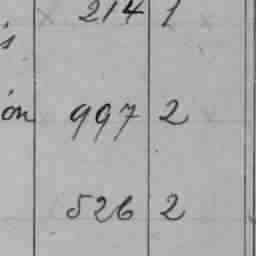 214 1
is
ón 997 2
526 2